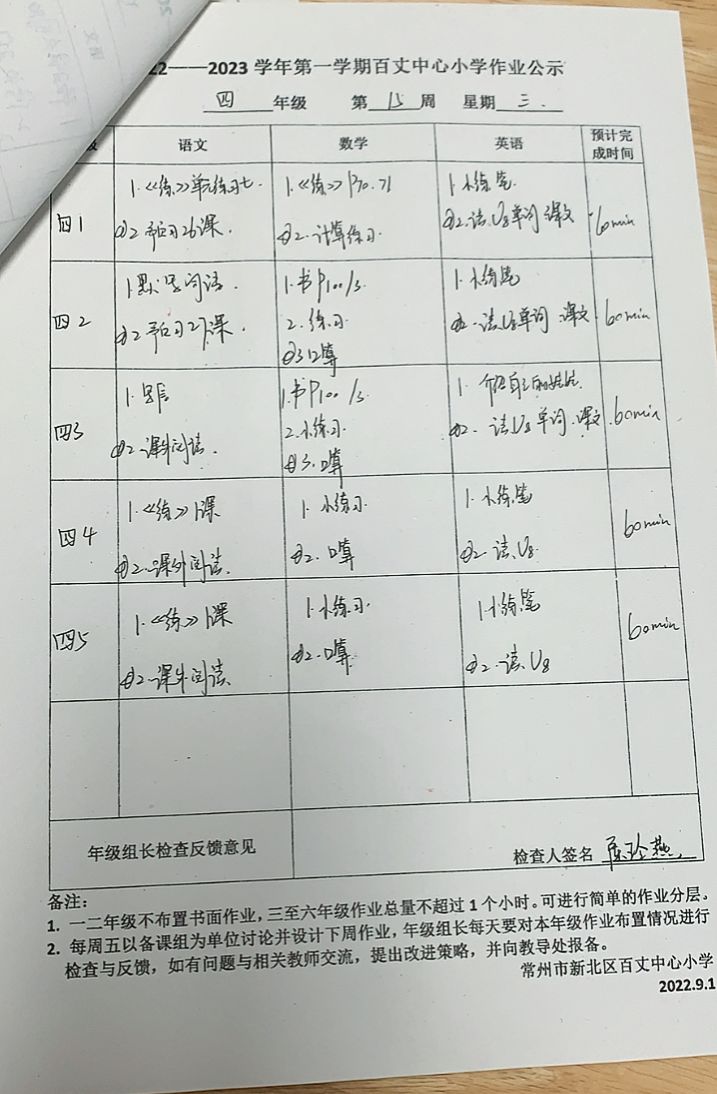 22——2023 学年第一学期百丈中心小学作业公示
四 年级 第 15 周 星期 三.
级 语文 数学 英语 预计完成时间
四1
1.《练》单元练习七. 1.《练》P70.71 1.小练笔.
②2.预习26课. ②2.计算练习. ②2.读U8单词 课文 60min
四2
1.默写词语. 1.书P100/3. 1.小练笔
②2预习27课. 2.练习. ②2.读U8单词 课文 60min
③3口算
四3
1. 1.书P100/3 1.介绍自己的
②2.课外阅读. 2.小练习. ②2.读U8单词.课文 60min
③3.口算
四4
1.《练》1课 1.小练习. 1.小练笔
②2.课外阅读. ②2.口算 ②2.读U8. 60min
四5
1.《练》1课 1.小练习. 1.小练笔
②2.课外阅读. ②2.口算 ②2.读U8 60min
年级组长检查反馈意见 检查人签名
备注:
1. 一二年级不布置书面作业,三至六年级作业总量不超过 1 个小时。可进行简单的作业分层。
2. 每周五以备课组为单位讨论并设计下周作业,年级组长每天要对本年级作业布置情况进行
检查与反馈,如有问题与相关教师交流,提出改进策略,并向教导处报备。
常州市新北区百丈中心小学
2022.9.1